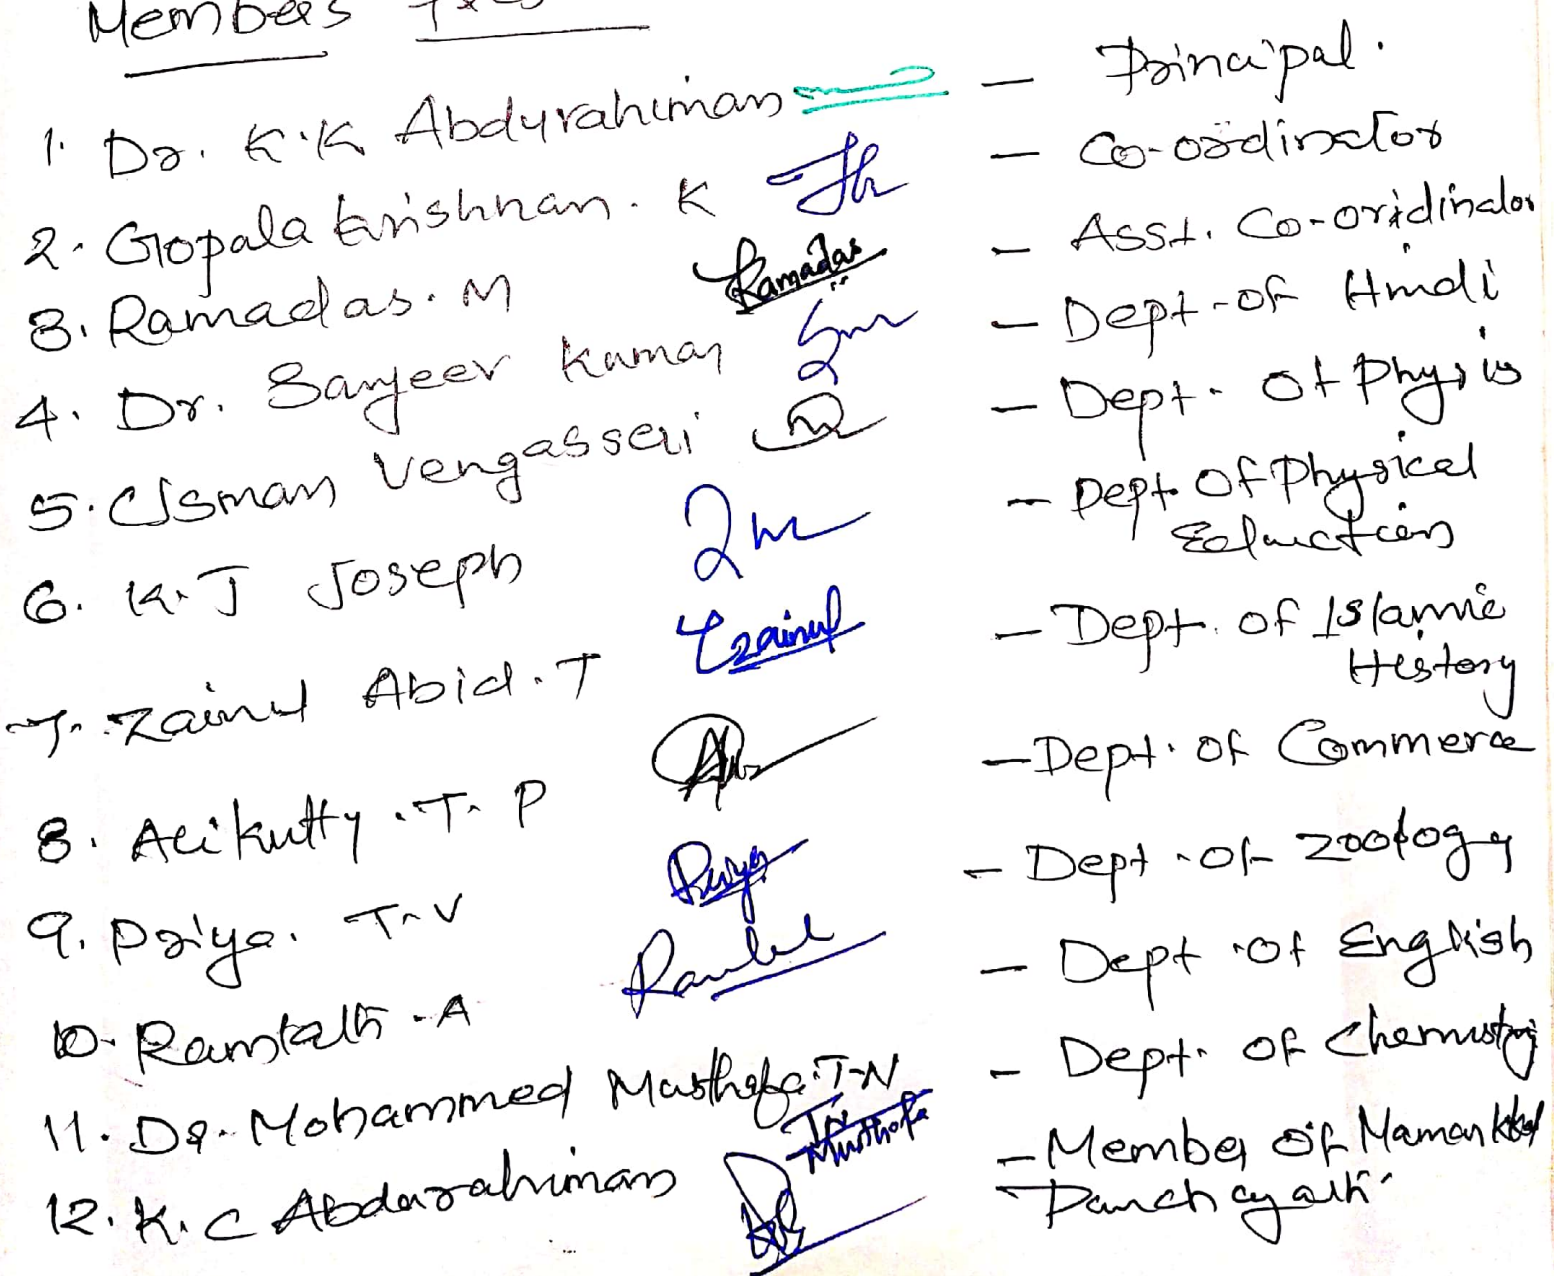 Members
1. Dr. K.K Abdurahiman — Principal.
2. Gopala krishnan. K — Co-ordinator
3. Ramadas. M Ramadas — Asst. Co-oridinator
4. Dr. Sanjeev Kumar — Dept. of Hindi
5. Usman Vengasseri — Dept. of Physics
6. K.J Joseph — Dept. Of Physical
Eduction
7. Zainul Abid. T Zainul — Dept. of Islamic
History
8. Alikutty. T. P — Dept. of Commerce
9. Priya. T.V Priya — Dept. of Zoology
10. Ramlath. A — Dept. of English
11. Dr. Mohammed Musthafa. T.N — Dept. of Chemistry
Musthafa
12. K. C Abdurahiman — Member of
Panchayath